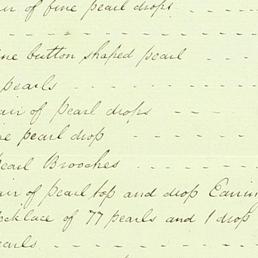 air of fine pearl drops - - -
- - - - - - - - - - - -
ine button shaped pearl - -
pearls - - - - - - - - -
air of pearl drops - - - -
ne pearl drop - - - - -
earl Brooches - - - - -
air of pearl top and drop Earrin
ecklace of 77 pearls and 1 drop
earls - - - - - - - - -